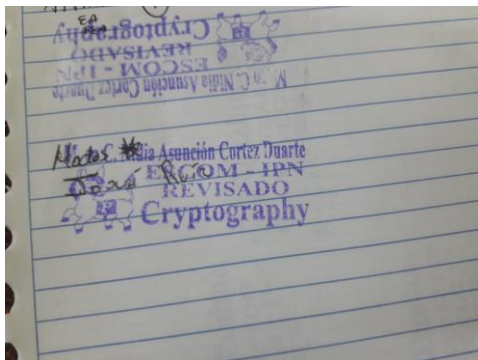 Cryptography
REVISADO
ESCOM - IPN
M. en C. Nidia Asunción Cortez Duarte
Modos
C. Nidia Asunción Cortez Duarte
ESCOM - IPN
REVISADO
Cryptography